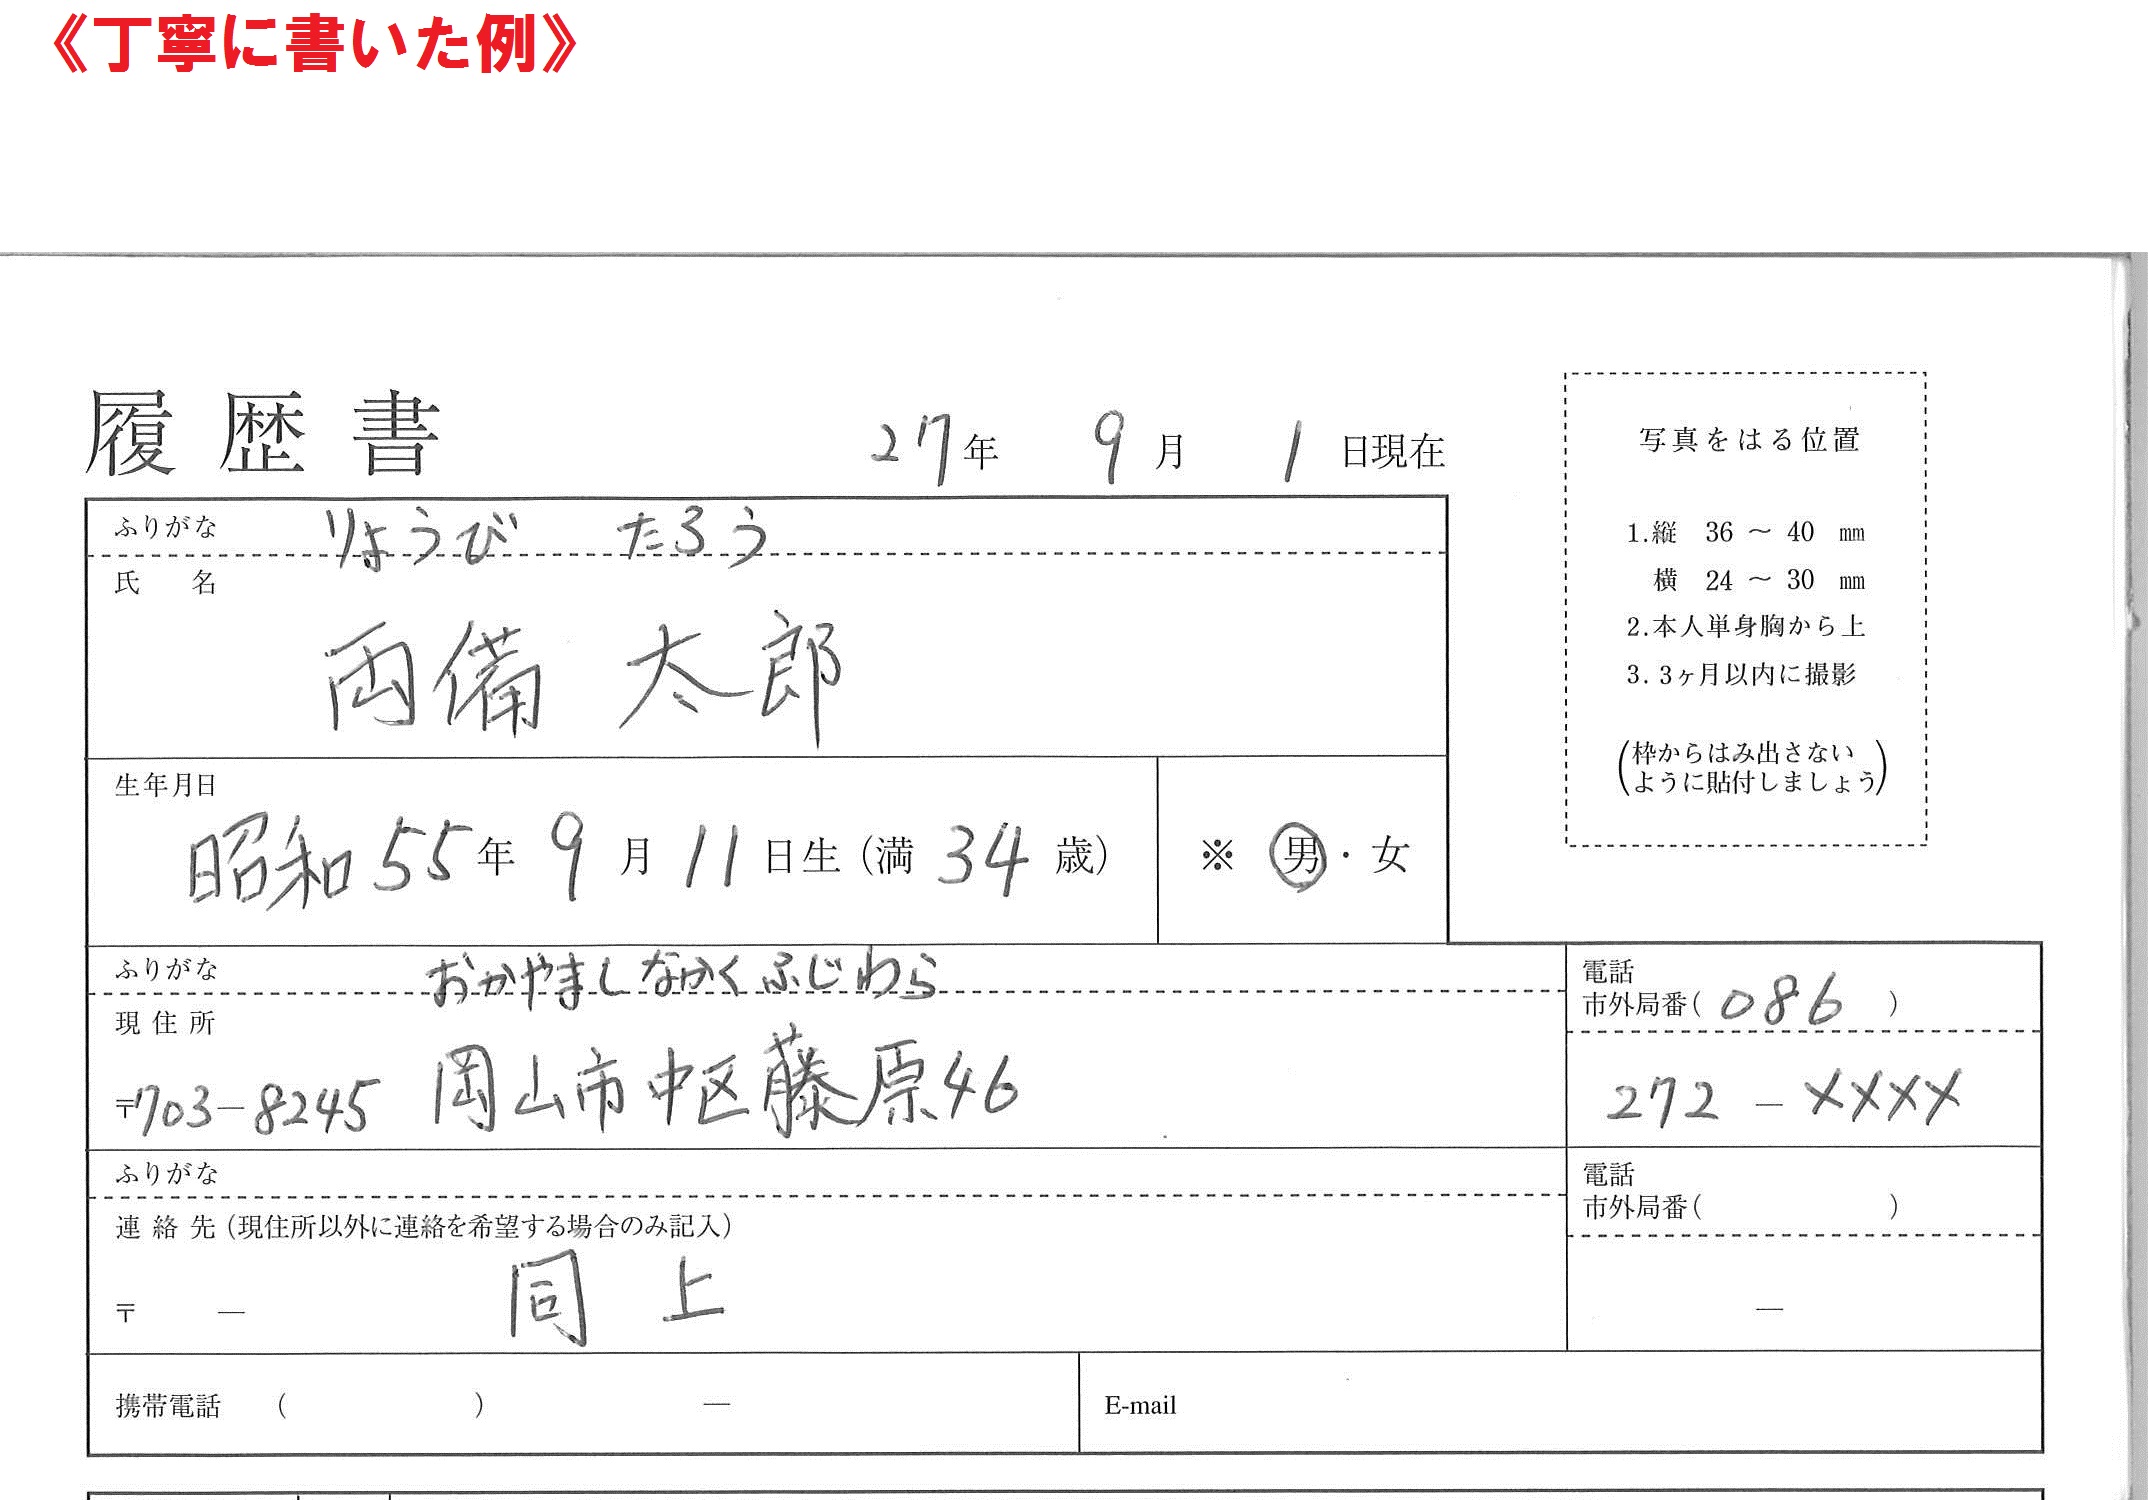 《丁寧に書いた例》
履歴書
27年 9月 1日現在
ふりがな りょうび たろう
氏 名
両備 太郎
生年月日
昭和55年 9月 11日生(満 34 歳)
※ 男・女
写真をはる位置
1.縦 36 ～ 40 mm
横 24 ～ 30 mm
2.本人単身胸から上
3.3ヶ月以内に撮影
(枠からはみ出さない
ように貼付しましょう)
ふりがな おかやましなかくふじわら
現住所
〒703-8245 岡山市中区藤原46
電話
市外局番( 086 )
272 - ××××
ふりがな
連絡先(現住所以外に連絡を希望する場合のみ記入)
〒 ― 同上
電話
市外局番( )
―
携帯電話 ( ) ―
E-mail